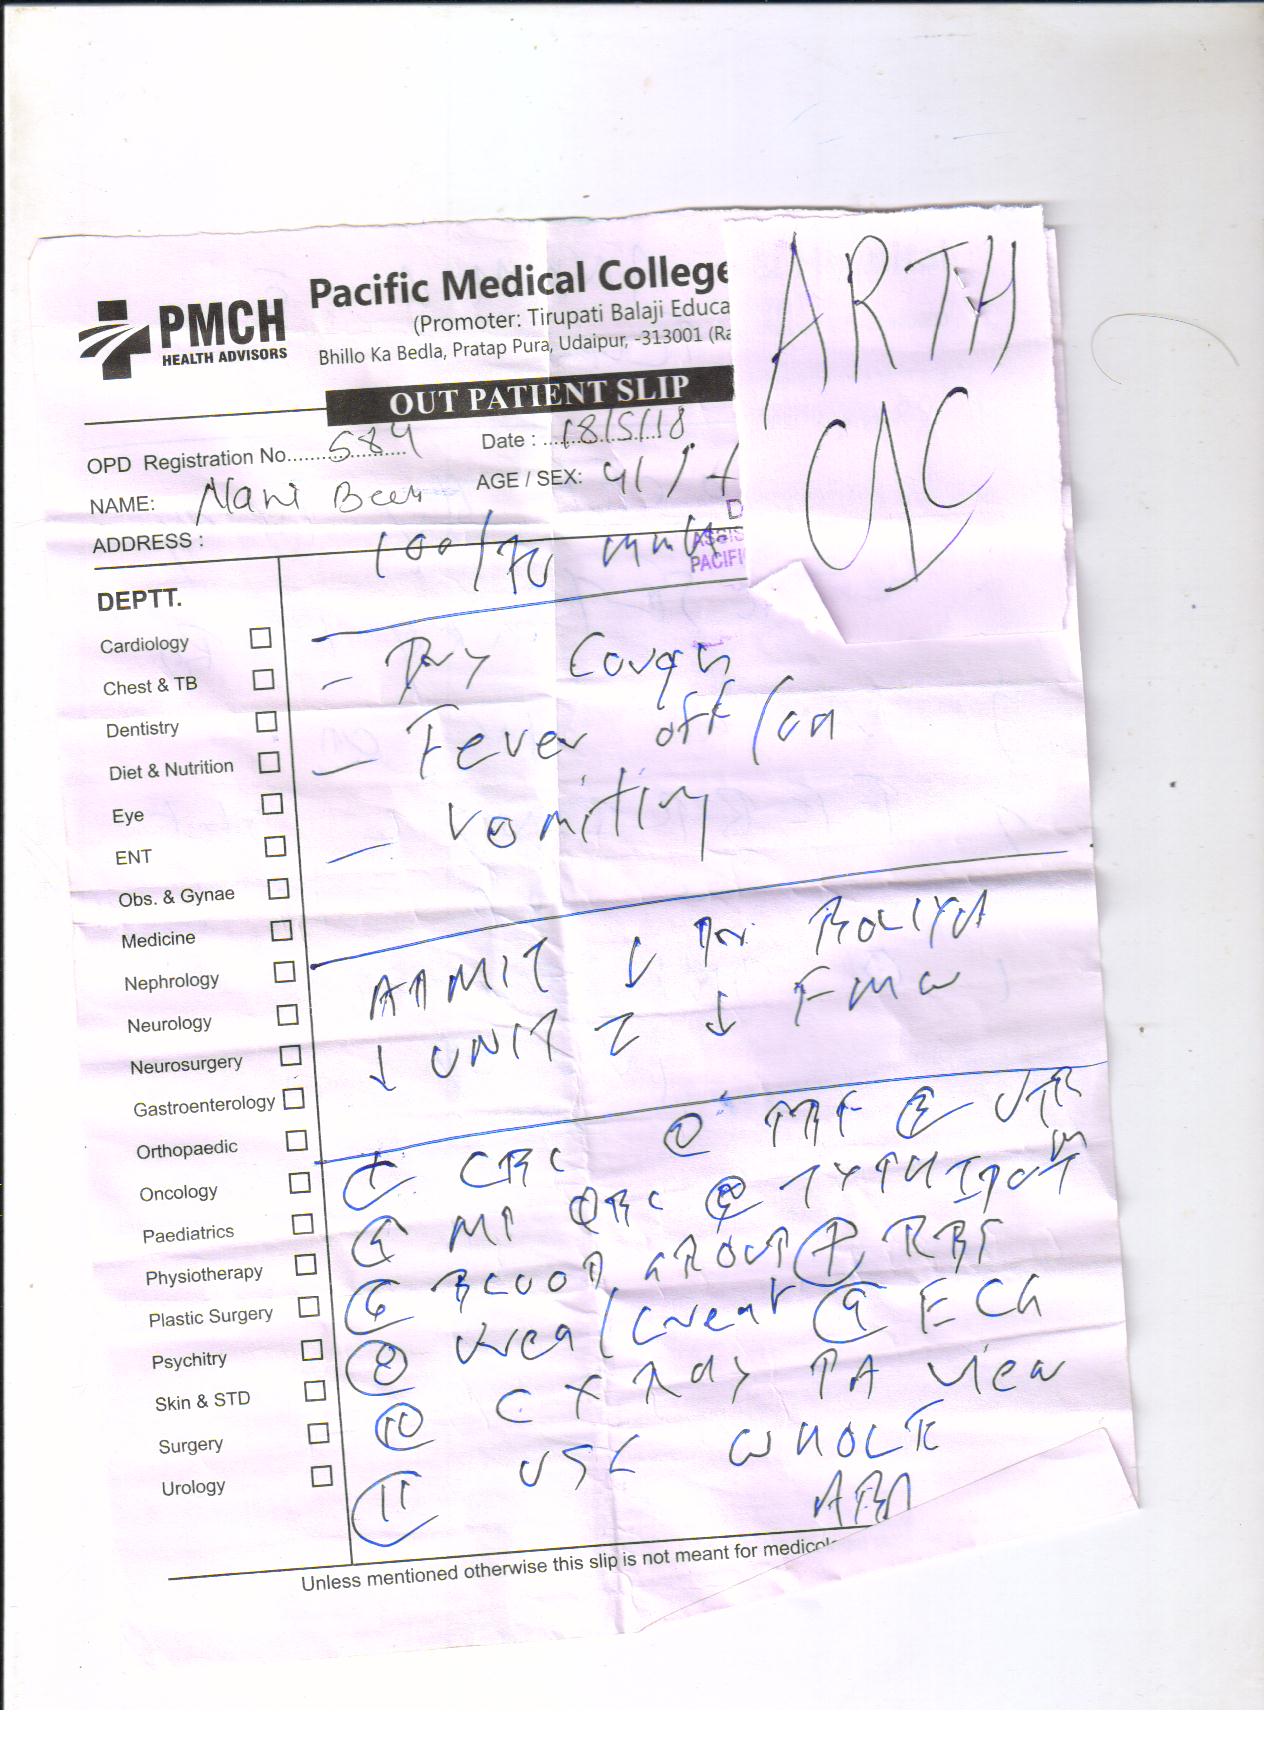 PMCH
HEALTH ADVISORS
Pacific Medical College
(Promoter: Tirupati Balaji Educa
Bhillo Ka Bedla, Pratap Pura, Udaipur, -313001 (Ra
OUT PATIENT SLIP
ARTH
OPD Registration No. 584 Date : 18/5/18
NAME: Nani AGE / SEX: 41 / f
ADDRESS :
100/70
ASSIS
PACIFI
DEPTT.
Cardiology
Chest & TB
Dentistry
Diet & Nutrition
Eye
ENT
Obs. & Gynae
Medicine
Nephrology
Neurology
Neurosurgery
Gastroenterology
Orthopaedic
Oncology
Paediatrics
Physiotherapy
Plastic Surgery
Psychitry
Skin & STD
Surgery
Urology
– Dry Cough
– Fever off/on
– Vomiting
ADMIT ↓ Dr
↓ UNIT ↓ FMW
① CBC ② PBF ③
④ MP QBC ⑤ TYPHIDOT M
⑥ BLOOD GROUP ⑦ RBS
⑧ Urea / Creat ⑨ ECG
⑩ C X Ray PA View
⑪ USG WHOLE
ABD
Unless mentioned otherwise this slip is not meant for medicol